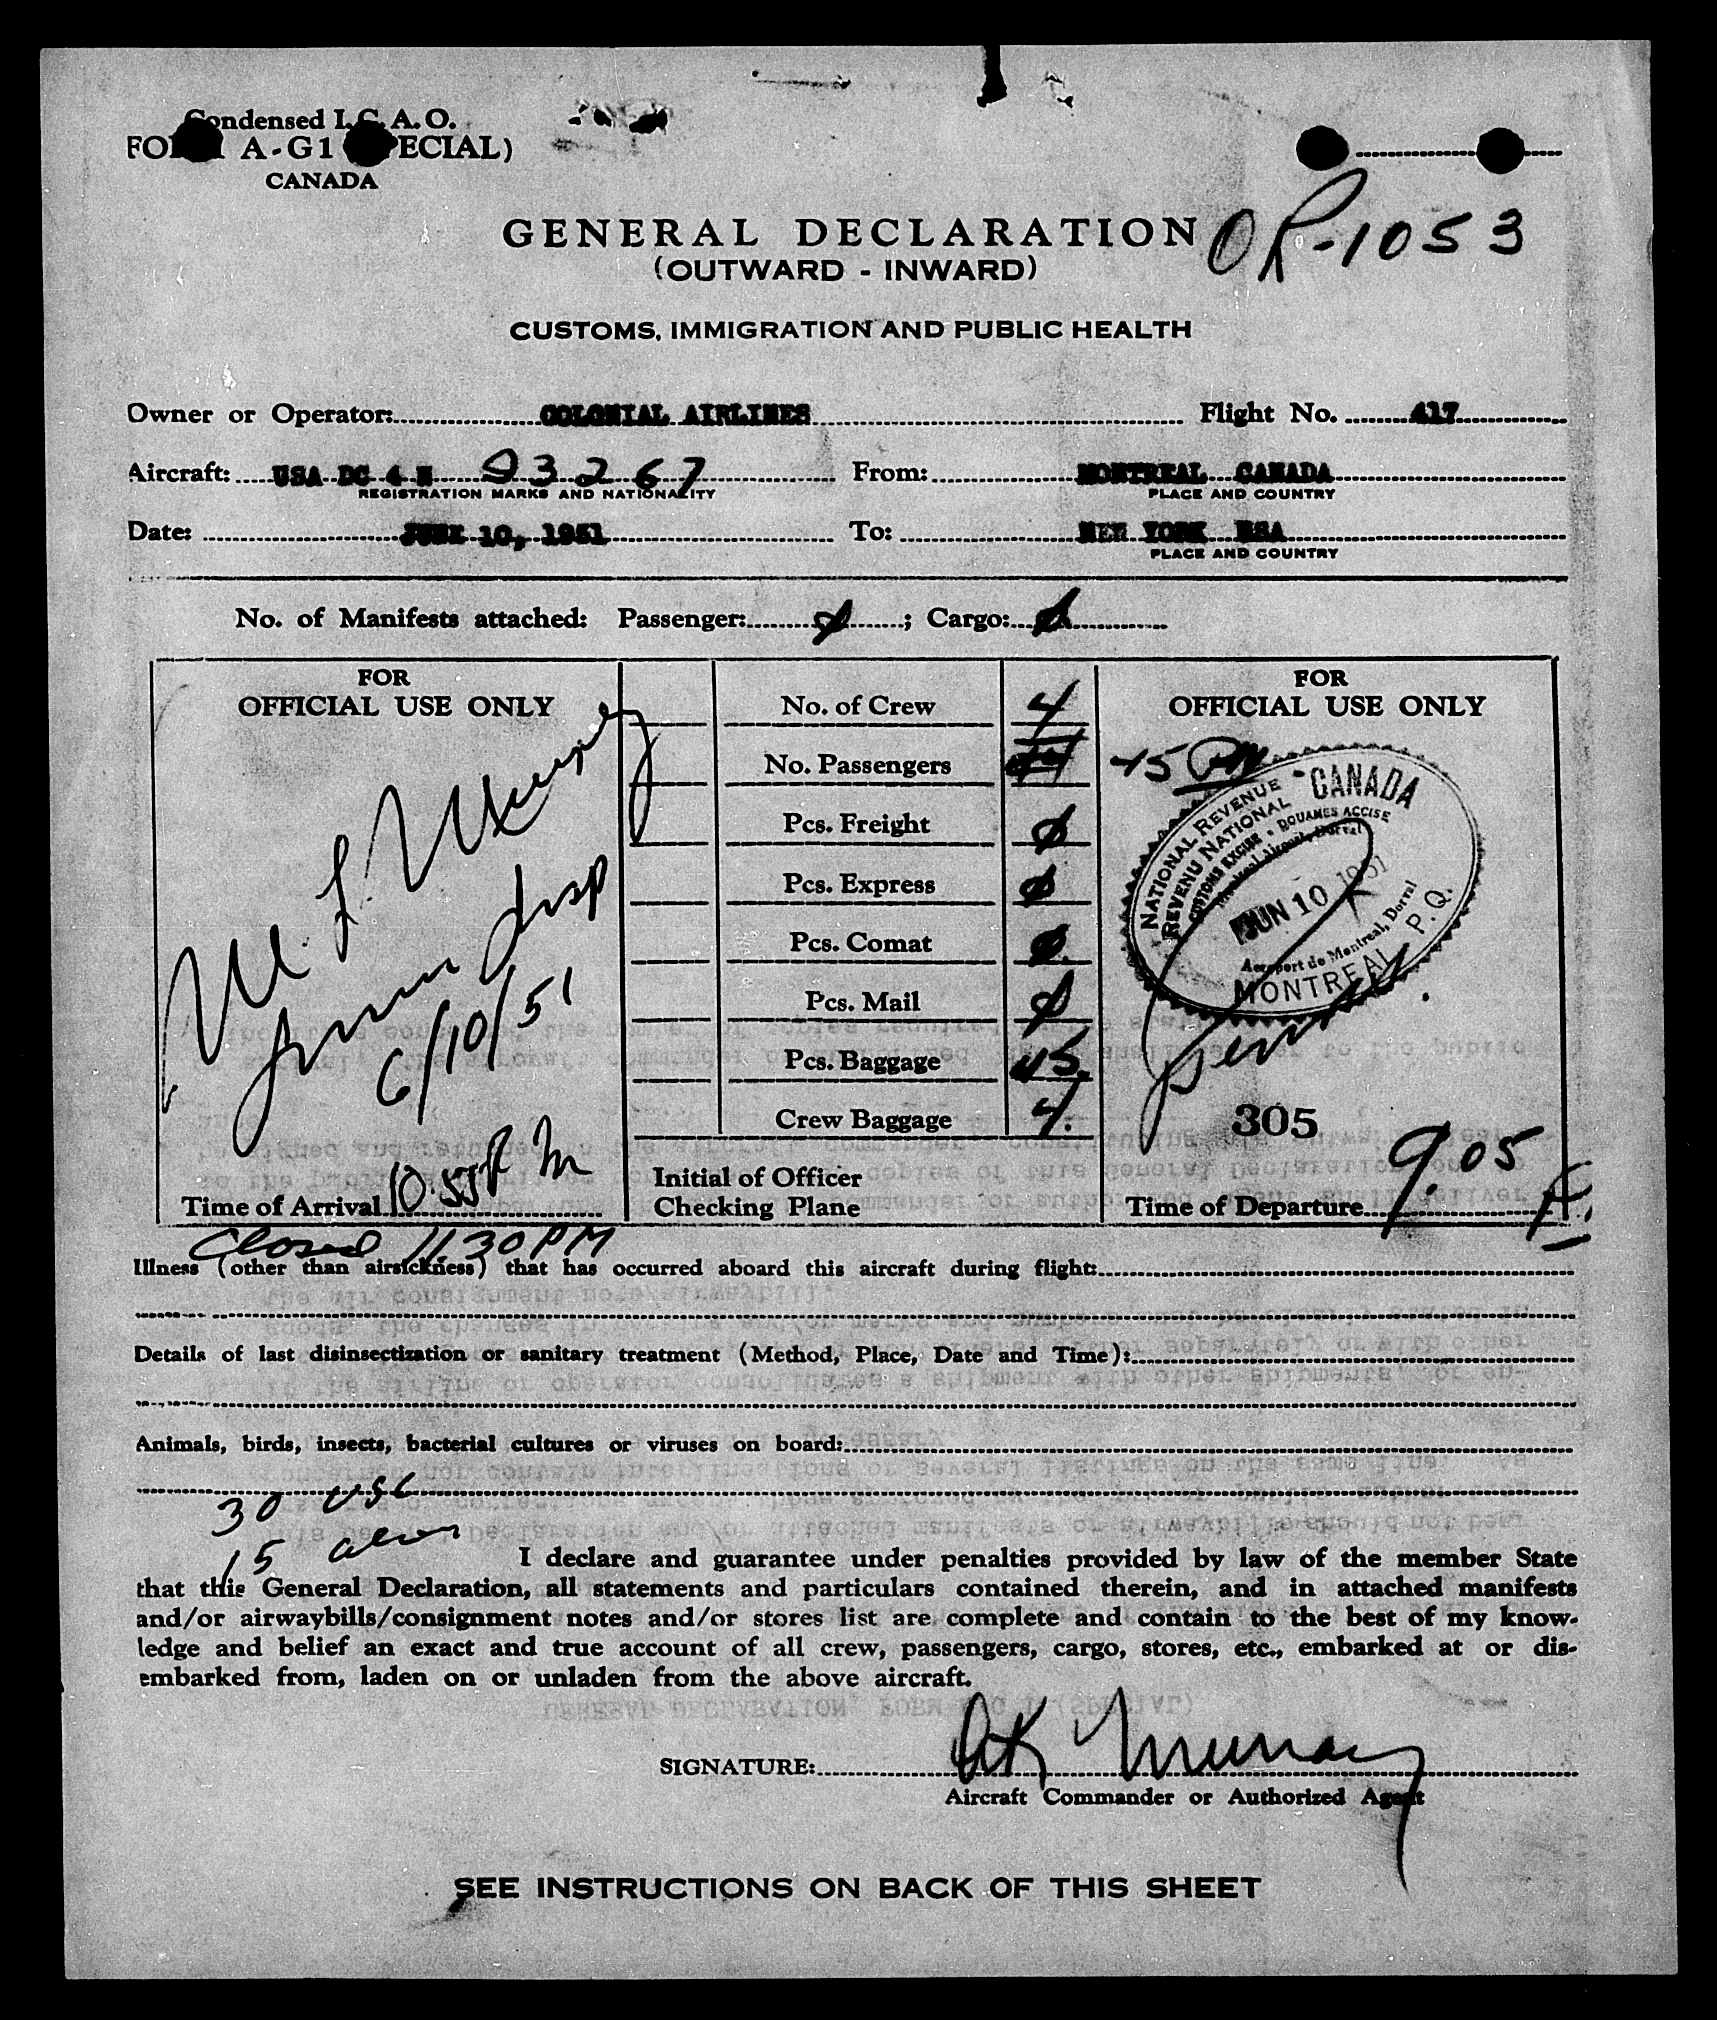 Condensed I.C.A.O.
FORM A-G1 (SPECIAL)
CANADA
OR-1053
GENERAL DECLARATION
(OUTWARD - INWARD)
CUSTOMS, IMMIGRATION AND PUBLIC HEALTH
Owner or Operator: COLONIAL AIRLINES Flight No. 417
Aircraft: USA DC 4 N 93267 From: MONTREAL CANADA
REGISTRATION MARKS AND NATIONALITY PLACE AND COUNTRY
Date: JUNE 10, 1951 To: NEW YORK USA
PLACE AND COUNTRY
No. of Manifests attached: Passenger: ; Cargo:
FOR
OFFICIAL USE ONLY
6/10/51
Time of Arrival 10.55 P M
Closed 11.30 PM
No. of Crew 4
No. Passengers
Pcs. Freight
Pcs. Express
Pcs. Comat
Pcs. Mail
Pcs. Baggage 45
Crew Baggage 4
Initial of Officer
Checking Plane
FOR
OFFICIAL USE ONLY
45
CANADA
NATIONAL REVENUE
REVENU NATIONAL
CUSTOMS EXCISE • DOUANES ACCISE
Montreal Airport, Dorval
JUN 10 1951
Aeroport de Montreal, Dorval
MONTREAL P.Q.
305
Time of Departure 9.05
Illness (other than airsickness) that has occurred aboard this aircraft during flight:
Details of last disinsectization or sanitary treatment (Method, Place, Date and Time):
Animals, birds, insects, bacterial cultures or viruses on board:
30 USC
15 alien
I declare and guarantee under penalties provided by law of the member State
that this General Declaration, all statements and particulars contained therein, and in attached manifests
and/or airwaybills/consignment notes and/or stores list are complete and contain to the best of my know-
ledge and belief an exact and true account of all crew, passengers, cargo, stores, etc., embarked at or dis-
embarked from, laden on or unladen from the above aircraft.
SIGNATURE: Murray
Aircraft Commander or Authorized Agent
SEE INSTRUCTIONS ON BACK OF THIS SHEET